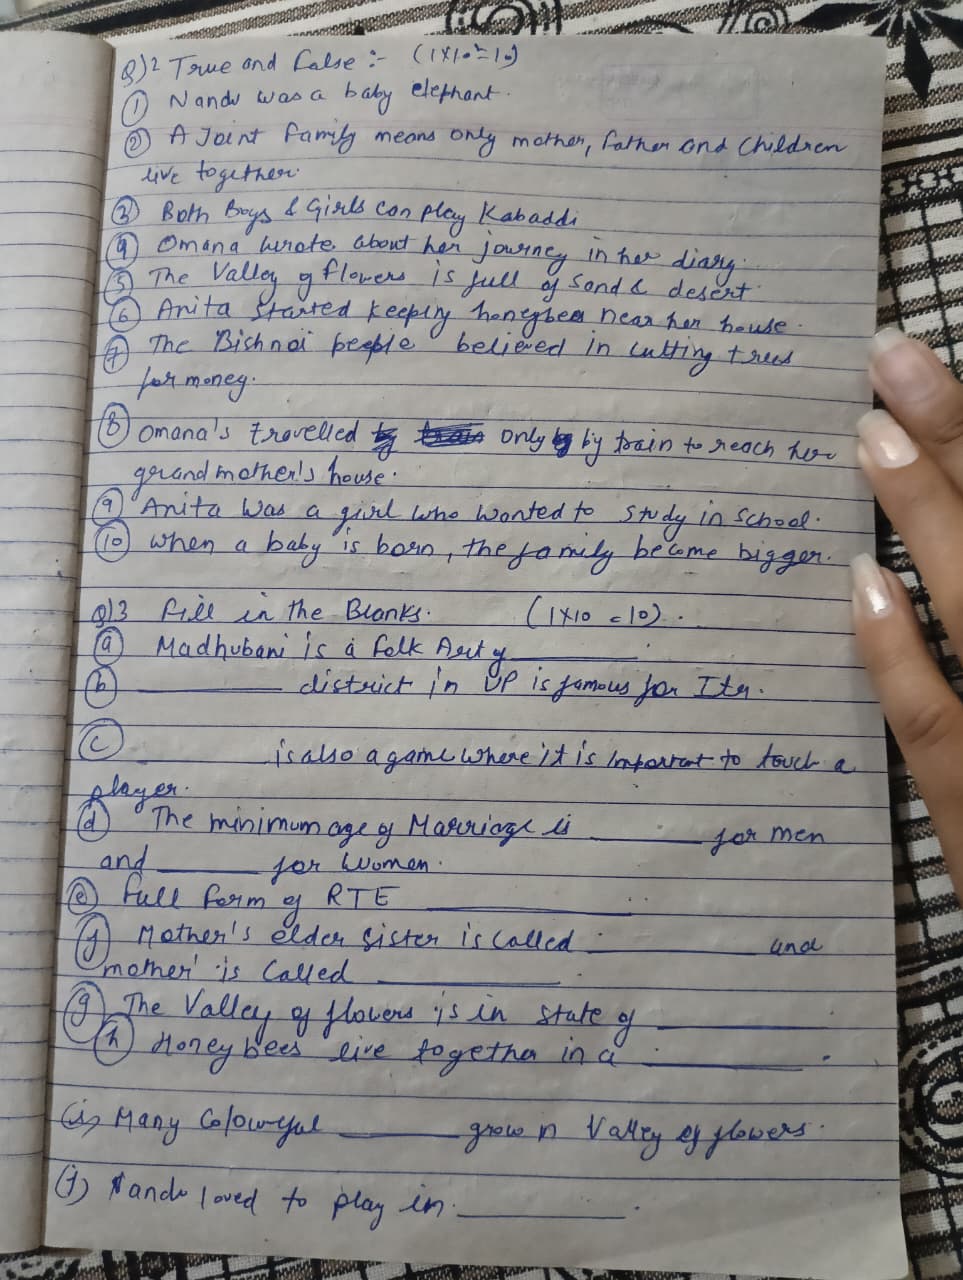 Q)2 True and False :- (1X10=10)
① Nandu was a baby elephant.
② A Joint Family means only mother, father and children
live together.
③ Both Boys & Girls can play Kabaddi
④ Omana wrote about her journey in her diary.
⑤ The Valley of flowers is full of sand & desert.
⑥ Anita started keeping honeybees near her house.
⑦ The Bishnoi people believed in cutting trees
for money.
⑧ Omana's travelled only by train to reach her
grandmother's house.
⑨ Anita was a girl who wanted to study in school.
⑩ when a baby is born, the family become bigger.
Q)3 Fill in the Blanks. (1X10 = 10).
ⓐ Madhubani is a folk Art of ________
ⓑ ________ district in UP is famous for Itr.
ⓒ ________ is also a game where it is important to touch a
player.
ⓓ The minimum age of Marriage is ______ for men
and ______ for women.
ⓔ Full form of RTE ________
ⓕ Mother's elder sister is called ________ and
mother' is called ________
ⓖ The Valley of flowers is in state of ________
ⓗ Honey bees live together in a ________.
(i) Many Colourful ______ grow n Valley of flowers.
(j) Nandu loved to play in ________.